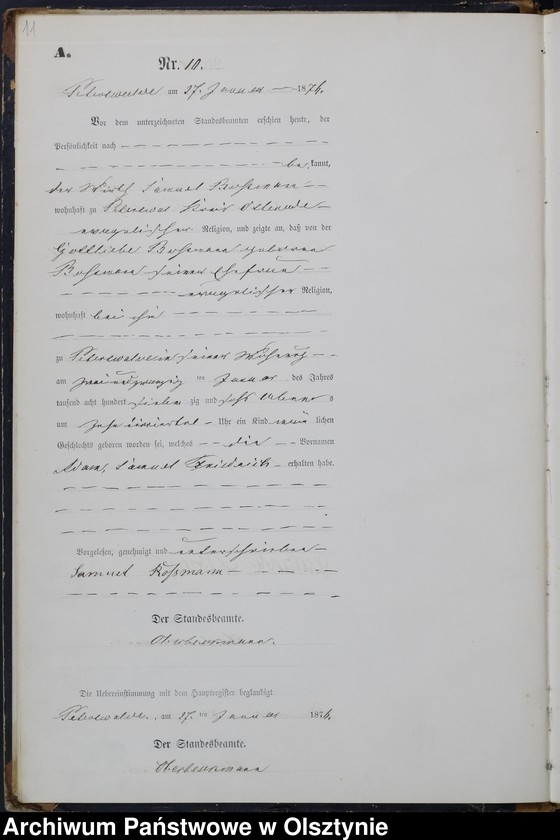 11
A.
Nr. 10.
am 27. Januar 1876.
Vor dem unterzeichneten Standesbeamten erschien heute, der
Persönlichkeit nach
be kannt,
der Wirth Samuel
wohnhaft zu Kreis Osterode
evangelischer Religion, und zeigte an, daß von der
Gottliebe geborene
seiner Ehefrau
evangelischer Religion,
wohnhaft bei ihm
zu in seiner Wohnung
am zwei und zwanzig ten Januar des Jahres
tausend acht hundert sieben zig und sechs Abends
um Uhr ein Kind männ lichen
Geschlechts geboren worden sei, welches die Vornamen
Adam, Samuel Friedrich erhalten habe.
Vorgelesen, genehmigt und unterschrieben
Samuel Roßmann
Der Standesbeamte.
Die Uebereinstimmung mit dem Hauptregister beglaubigt.
am 27. ten Januar 1876.
Der Standesbeamte.
Archiwum Państwowe w Olsztynie